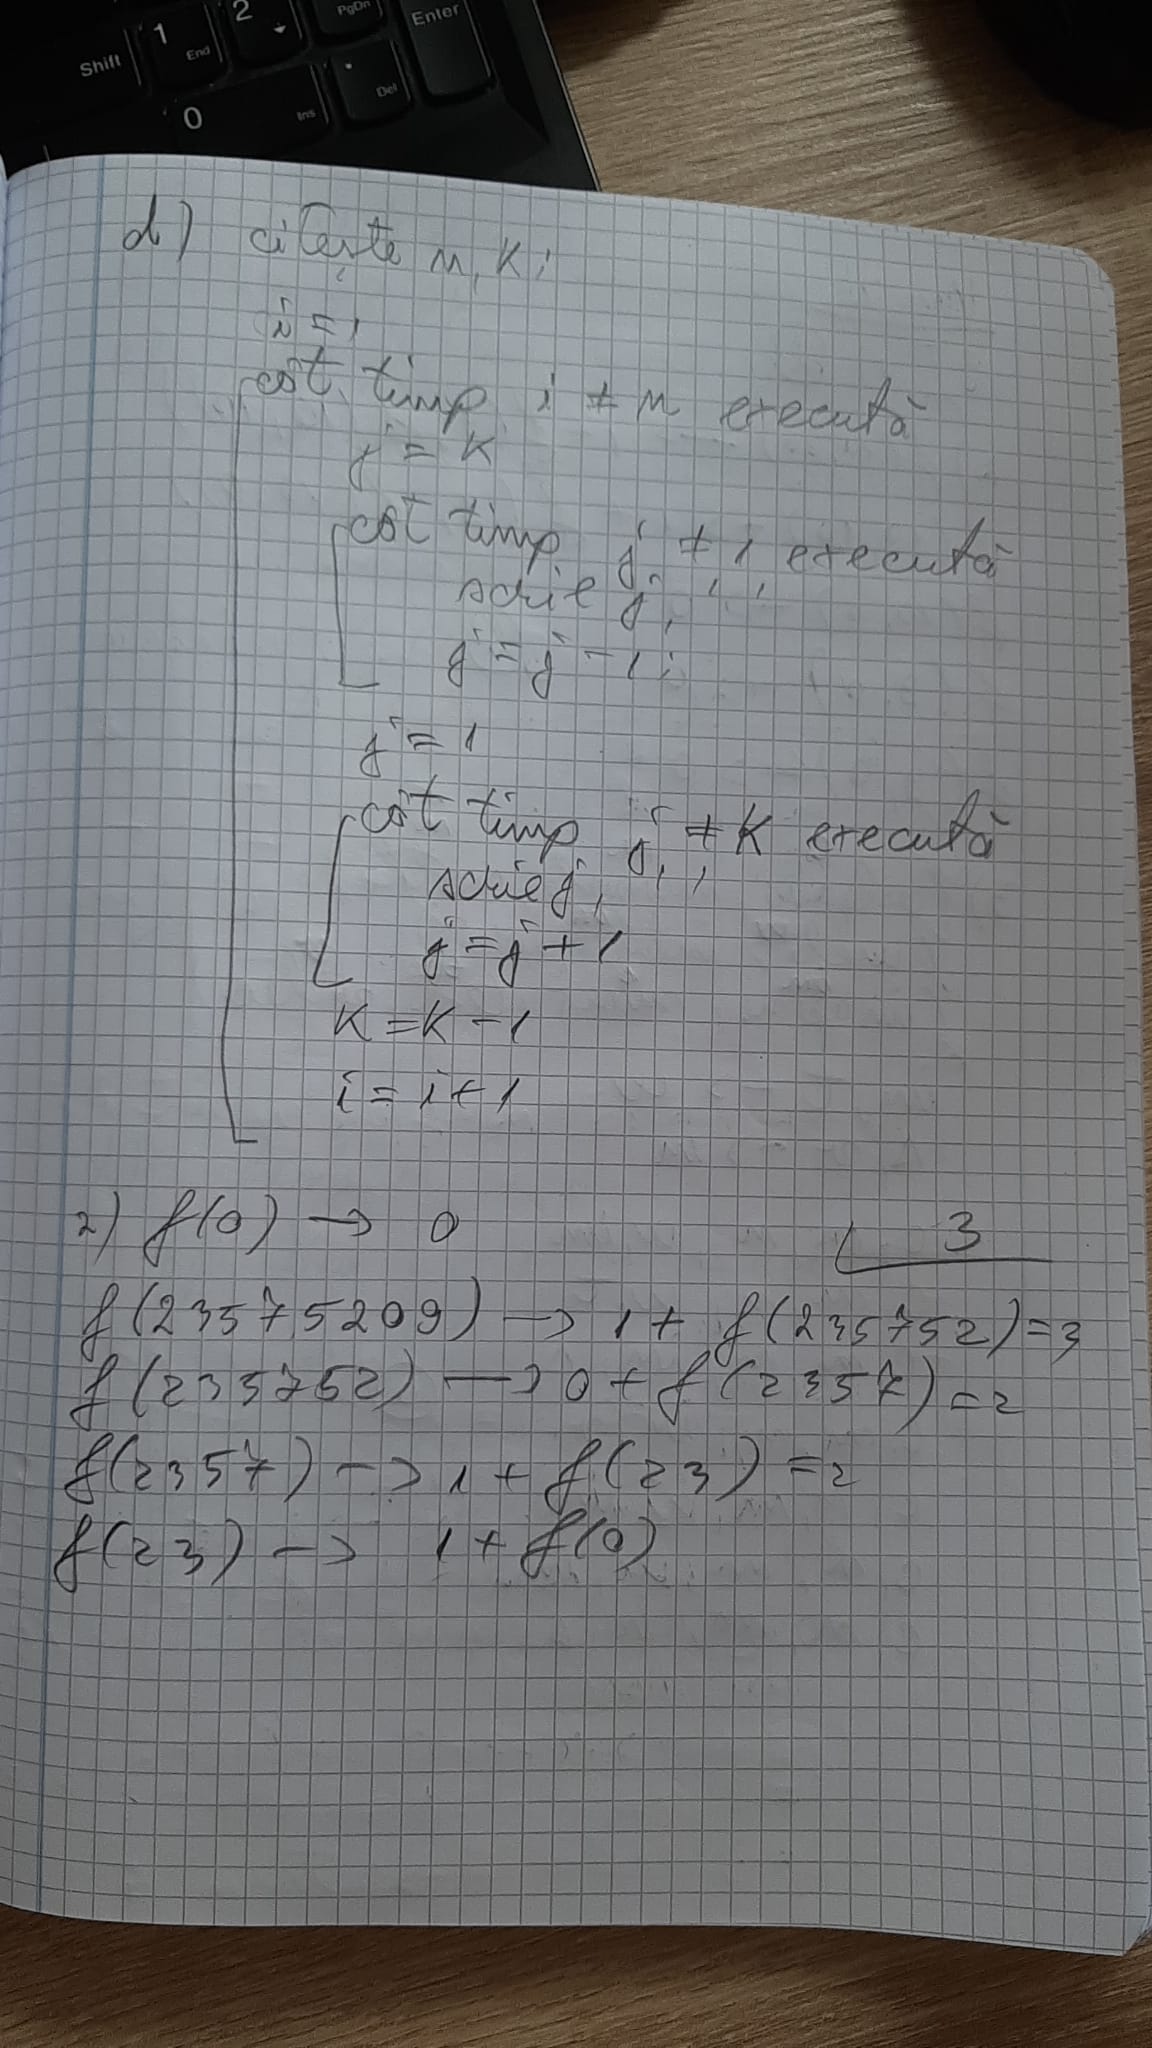 Shift
1
End
2
PgDn
Enter
0
Ins
.
Del
d) citește n, k;
i = 1
cât timp i ≠ n execută
j = k
cât timp j ≠ 1 execută
scrie j, ' ';
j = j - 1;
j = 1
cât timp j ≠ k execută
scrie j, ' '
j = j + 1
k = k - 1
i = i + 1
2) f(0) → 0
3
f(23575209) → 1 + f(235752) = 3
f(235752) → 0 + f(2357) = 2
f(2357) → 1 + f(23) = 2
f(23) → 1 + f(0)